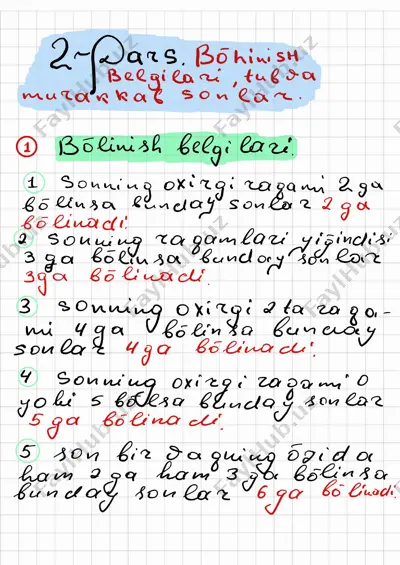 2-Dars. Bōhinish
Belgilari, tubda
murakkab sonlar.
1 Bōlinish belgilari.
1 Sonning oxirgi raqami 2 ga
bōlinsa bunday sonlar 2 ga
bōlinadi.
2 Sonning raqamlari yiğindisi
3 ga bōlinsa bunday sonlar
3ga bōlinadi.
3 Sonning oxirgi 2 ta raqa-
mi 4 ga bōlinsa bunday
sonlar 4 ga bōlinadi.
4 Sonning oxirgi raqami 0
yoki 5 bōlsa bunday sonlar
5 ga bōlinadi.
5 son bir vaqning ōzida
ham 2 ga ham 3 ga bōlinsa
bunday sonlar 6 ga bōlinadi.
FaylHub.uz